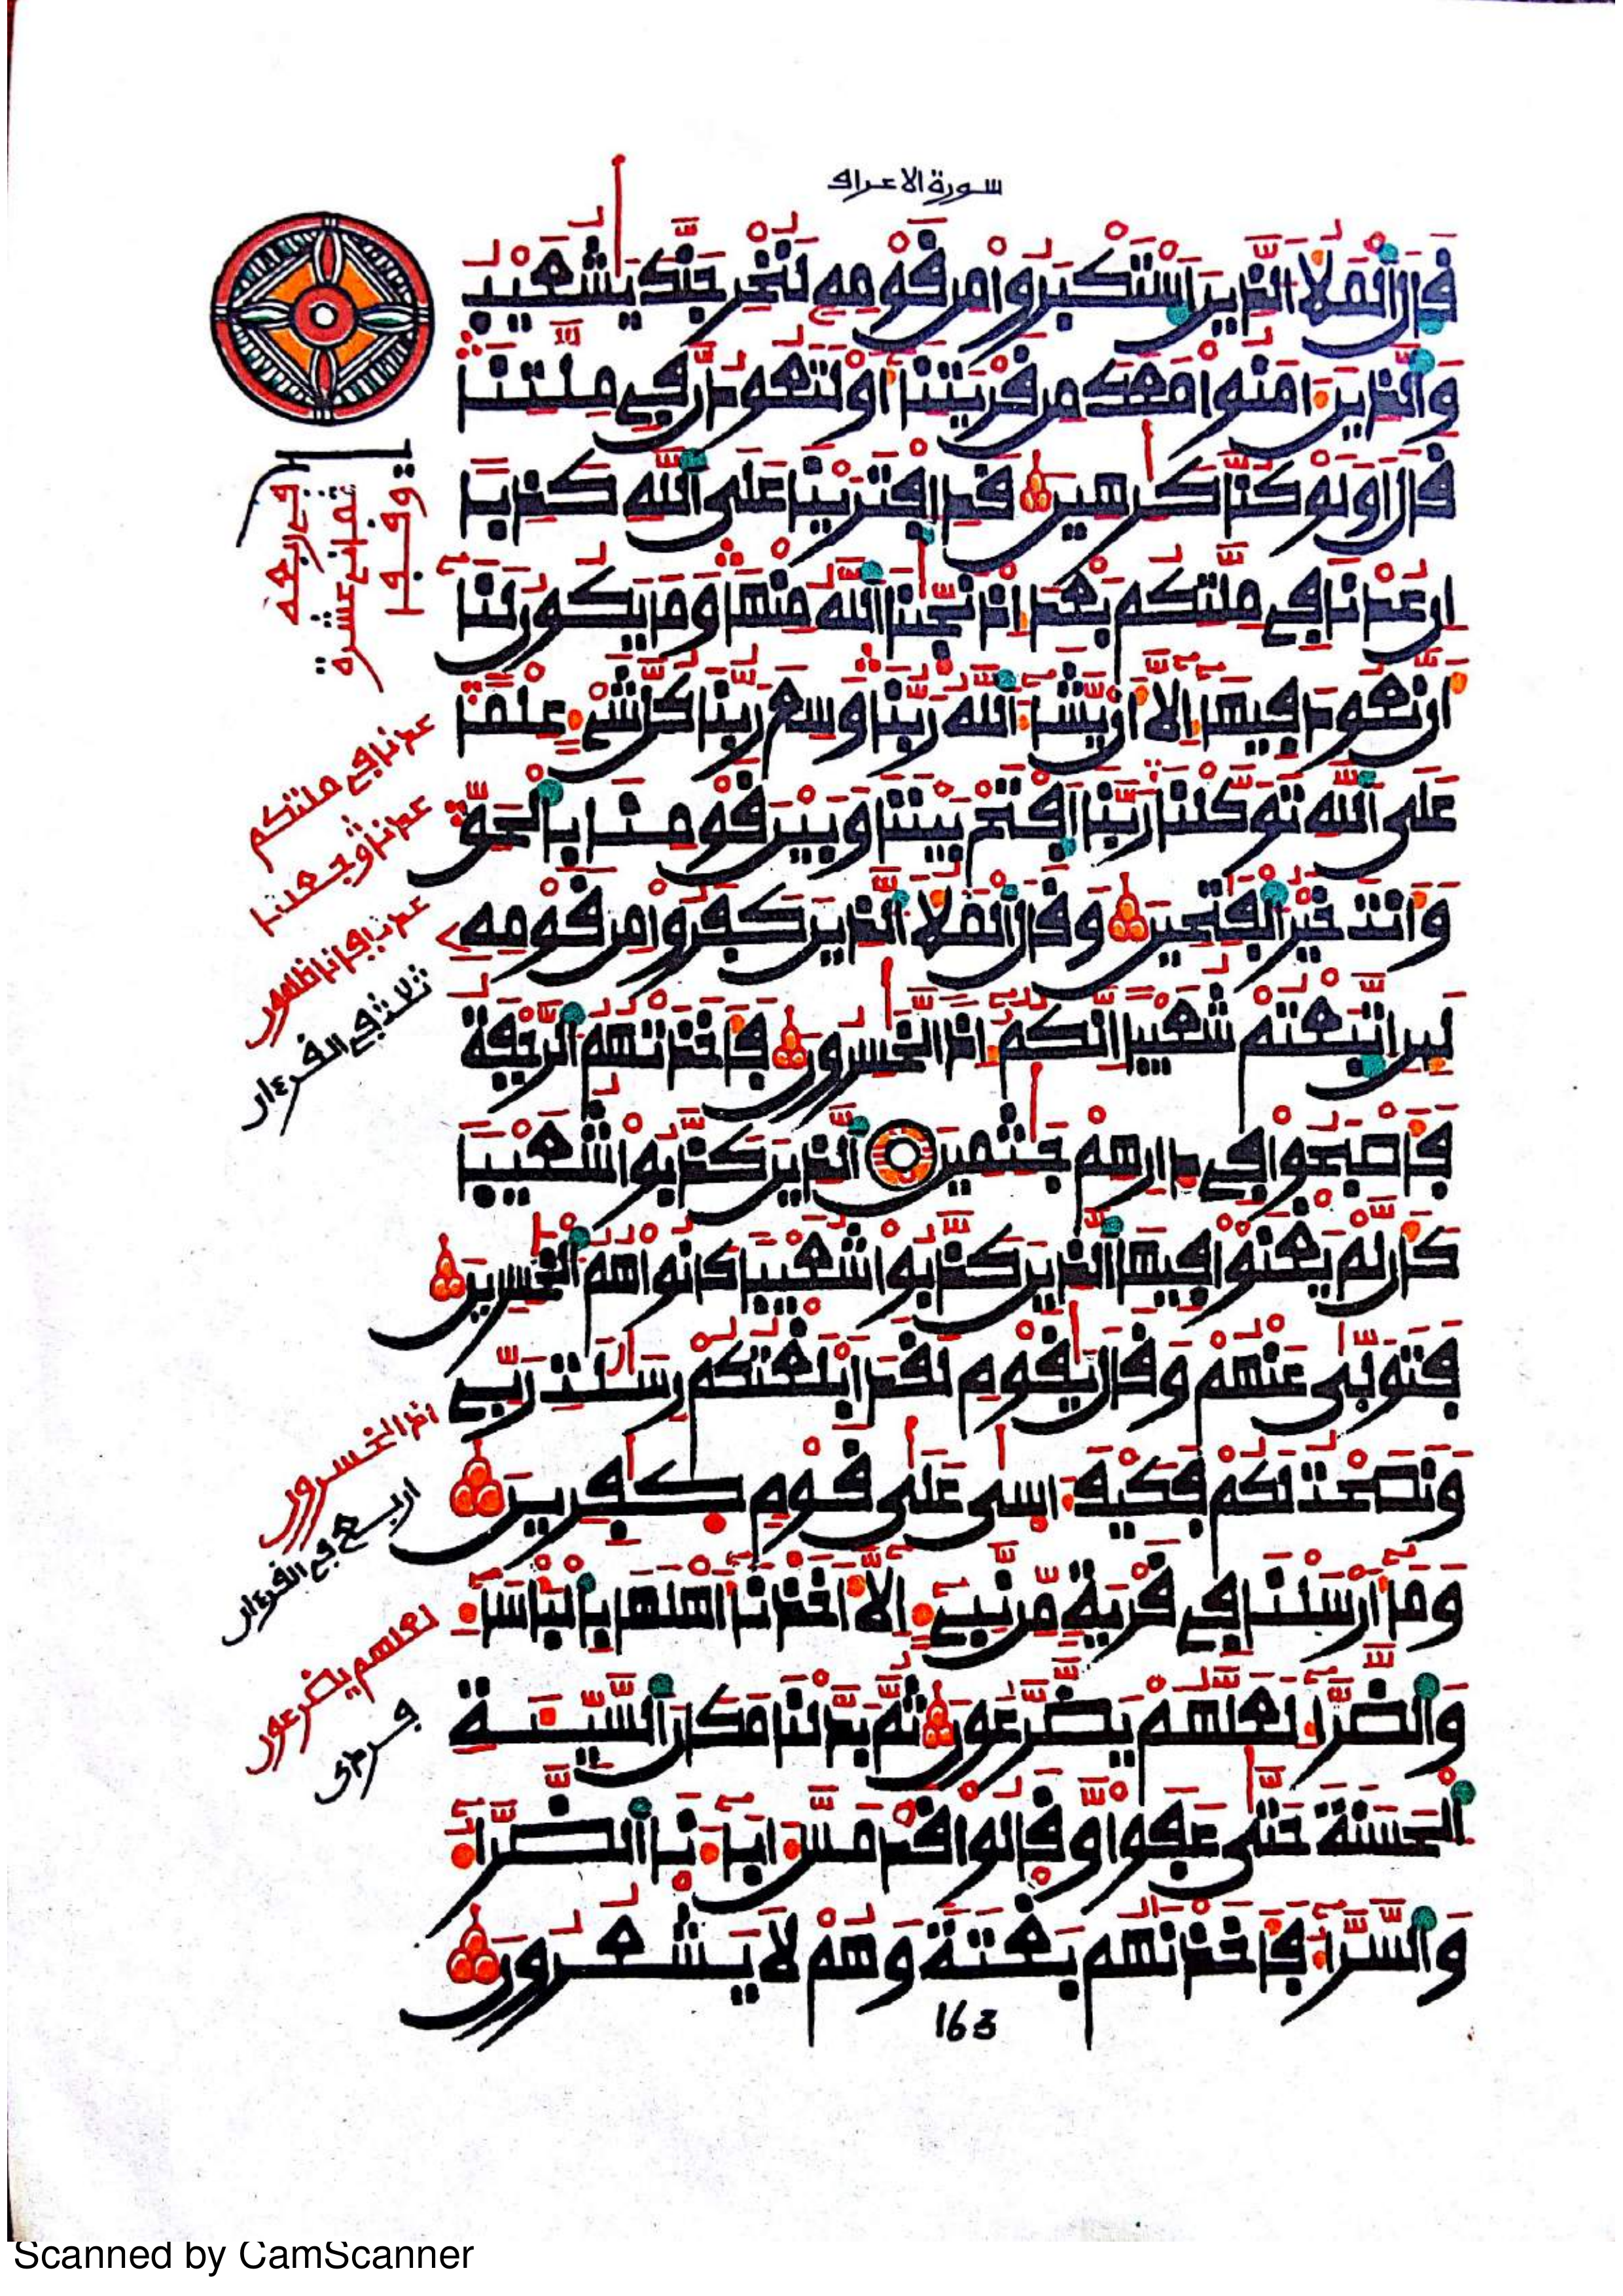 سورة الاعراف
قَالَ الْمَلَأُ الذِينَ اسْتَكْبَرُوا مِن قَوْمِهِ لَنُخْرِجَنَّكَ يَشُعَيْبُ
وَالذِينَ ءَامَنُوا مَعَكَ مِن قَرْيَتِنَا أَوْ لَتَعُودُنَّ فِي مِلَّتِنَا
قَالَ أَوَلَوْ كُنَّا كَرِهِينَ قَدِ افْتَرَيْنَا عَلَى اللَّهِ كَذِبًا
إِنْ عُدْنَا فِي مِلَّتِكُم بَعْدَ إِذْ نَجَّيْنَا اللَّهُ مِنْهَا وَمَا يَكُونُ لَنَا
أَن نَّعُودَ فِيهَا إِلَّا أَن يَّشَاءَ اللَّهُ رَبُّنَا وَسِعَ رَبُّنَا كُلَّ شَيْءٍ عِلْمًا
عَلَى اللَّهِ تَوَكَّلْنَا رَبَّنَا افْتَحْ بَيْنَنَا وَبَيْنَ قَوْمِنَا بِالْحَقِّ
وَأَنتَ خَيْرُ الْفَتِحِينَ وَقَالَ الْمَلَأُ الذِينَ كَفَرُوا مِن قَوْمِهِ
لَئِنِ اتَّبَعْتُمْ شُعَيْبًا إِنَّكُمْ إِذًا لَّخَسِرُونَ فَأَخَذَتْهُمُ الرَّجْفَةُ
فَأَصْبَحُوا فِي دَارِهِمْ جَثِمِينَ الذِينَ كَذَّبُوا شُعَيْبًا
كَأَن لَّمْ يَغْنَوْا فِيهَا الذِينَ كَذَّبُوا شُعَيْبًا كَانُوا هُمُ الْخَسِرِينَ
فَتَوَلَّى عَنْهُمْ وَقَالَ يَقَوْمِ لَقَدْ أَبْلَغْتُكُمْ رِسَلَتِ رَبِّي
وَنَصَحْتُ لَكُمْ فَكَيْفَ ءَاسَى عَلَى قَوْمٍ كَفِرِينَ
وَمَا أَرْسَلْنَا فِي قَرْيَةٍ مِّن نَّبِيءٍ إِلَّا أَخَذْنَا أَهْلَهَا بِالْبَأْسَاءِ
وَالضَّرَّاءِ لَعَلَّهُمْ يَضَّرَّعُونَ ثُمَّ بَدَّلْنَا مَكَانَ السَّيِّئَةِ
الْحَسَنَةَ حَتَّى عَفَوا وَّقَالُوا قَدْ مَسَّ ءَابَاءَنَا الضَّرَّاءُ
وَالسَّرَّاءُ فَأَخَذْنَهُم بَغْتَةً وَهُمْ لَا يَشْعُرُونَ
163
عدنا في ملتكم
عدنا وجعلنا
عدنا فإنا ظلمون
ثلاث في القرءان
اذا لخسرون
اربع في القرءان
لعلهم يضرعون
فردى
Scanned by CamScanner